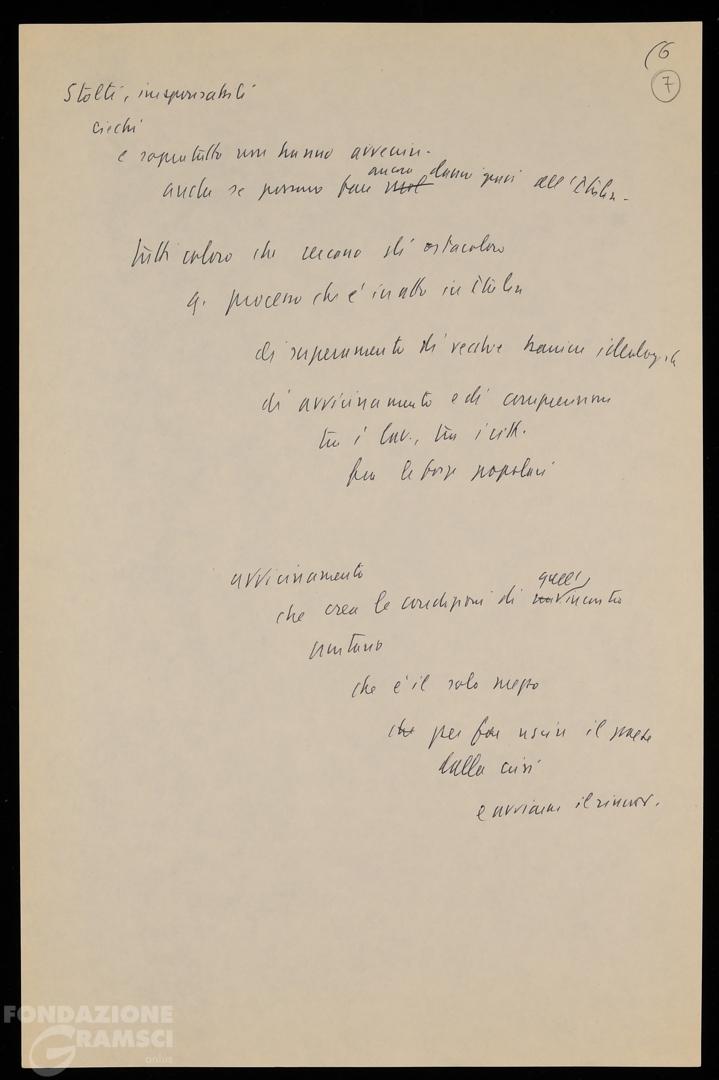 6
7
Stolti, irresponsabili
ciechi
e sopratutto non hanno avvenir.
ancora
anche se possono fare mol danni gravi all'Italia.
tutti coloro che cercano di ostacolare
q. processo che è in atto in Italia
di superamento di vecchie barriere ideologich
di avvicinamento e di comprensione
tra i lav., tra i citt.
fra le forze popolari
avvicinamento
quell'
che crea le condizioni di incontro
unitario
che è il solo mezzo
che per far uscire il paese
dalla crisi
e avviarne il rinnov.
FONDAZIONE
GRAMSCI
onlus